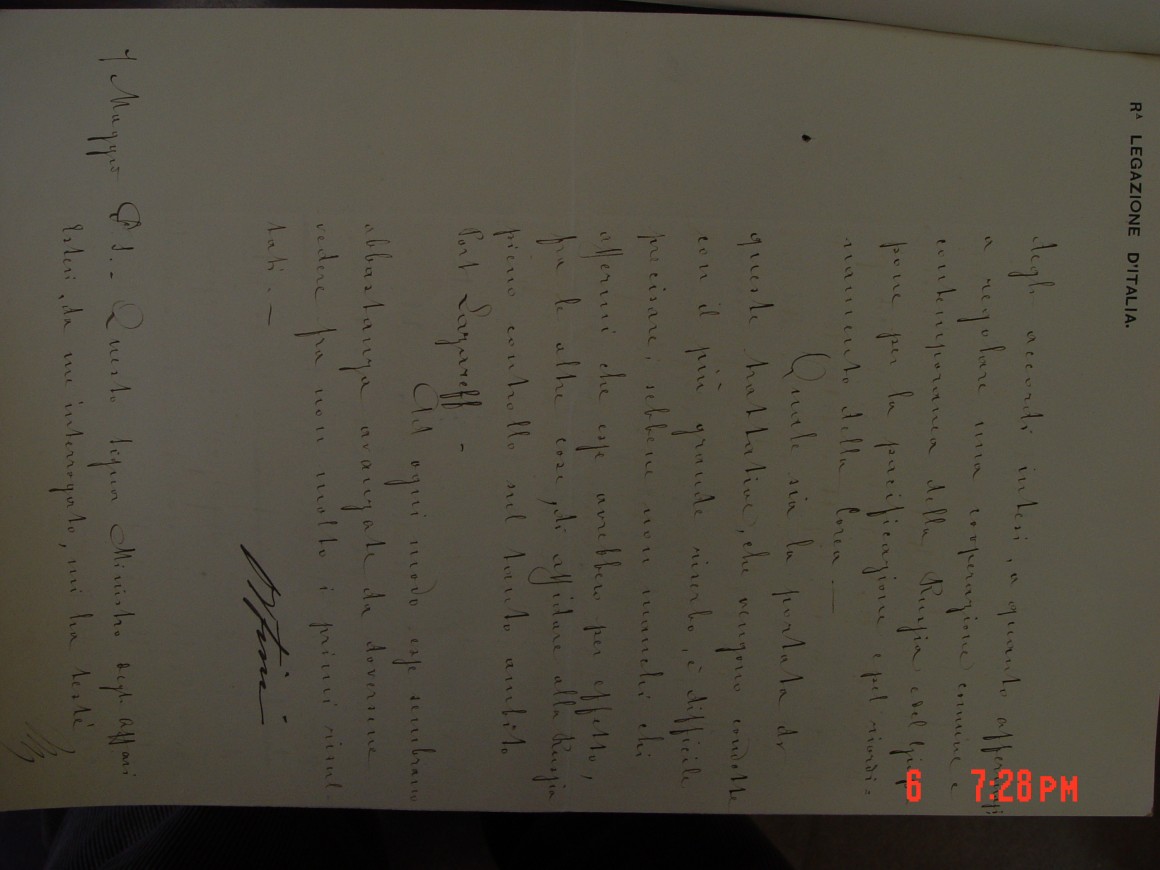 Rᴬ LEGAZIONE D'ITALIA.
degli accordi intesi, a quanto affermasi
a regolare una cooperazione comune e
contemporanea della Russia e del Giap=
pone per la pacificazione e pel riordi=
namento della Corea. —
Quale sia la portata di
queste trattative, che vengono condotte
con il più grande riserbo, è difficile
precisare, sebbene non manchi chi
affermi che esse avrebbero per effetto,
fra le altre cose, di affidare alla Russia
pieno controllo sul tanto ambito
Port Lazareff. -
Ad ogni modo esse sembrano
abbastanza avanzate da doversene
vedere fra non molto i primi risul-
tati. —
7 Maggio P.S. - Questo signor Ministro degli Affari
Esteri, da me interrogato, mi ha testè,
6 7:28 PM